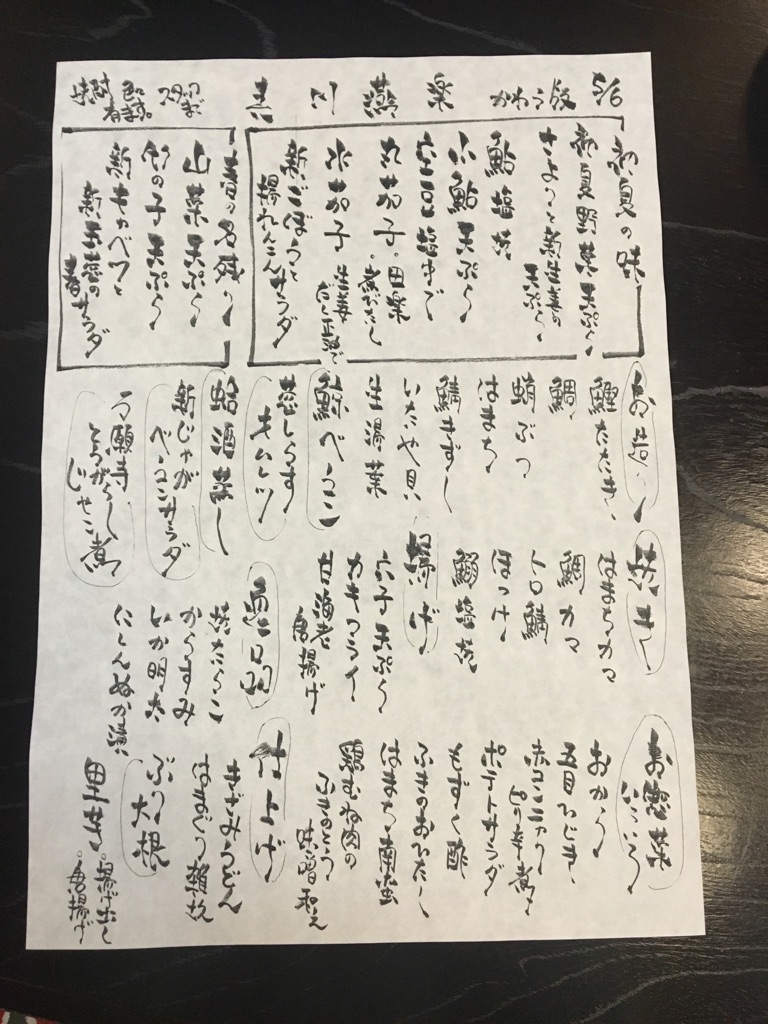 5/6
かわら版
楽
燕
川
吉
初夏の味
初夏野菜天ぷら
新生姜の
天ぷら
鮎塩焼
小鮎天ぷら
空豆塩ゆで
丸茄子。田楽
煮びたし
水茄子
生姜
新ごぼうと
揚れんこんサラダ
春の名残り
山菜天ぷら
竹の子天ぷら
新キャベツと
新玉葱の
春サラダ
お造り
鰹たたき
鯛
蛸ぶつ
はまち
鯖きずし
いたや貝
生湯葉
釜しらす
キムレツ
蛤酒蒸し
新じゃが
ベーコンサラダ
万願寺
とうがらし
じゃこ煮
焼き
はまちカマ
鯛カマ
トロ鯖
ほっけ
鰯塩焼
揚げ
穴子天ぷら
カキフライ
甘海老
唐揚げ
焼たらこ
からすみ
いか明太
にしんぬか漬
お惣菜
いろいろ
おから
五目ひじき
赤コンニャク
ピリ辛煮
ポテトサラダ
もずく酢
ふきのおひたし
はまち南蛮
鶏むね肉の
ふきのとう
味噌和え
仕上げ
きざみうどん
はまぐり雑炊
ぶり
大根
里芋。揚げ出し
。唐揚げ